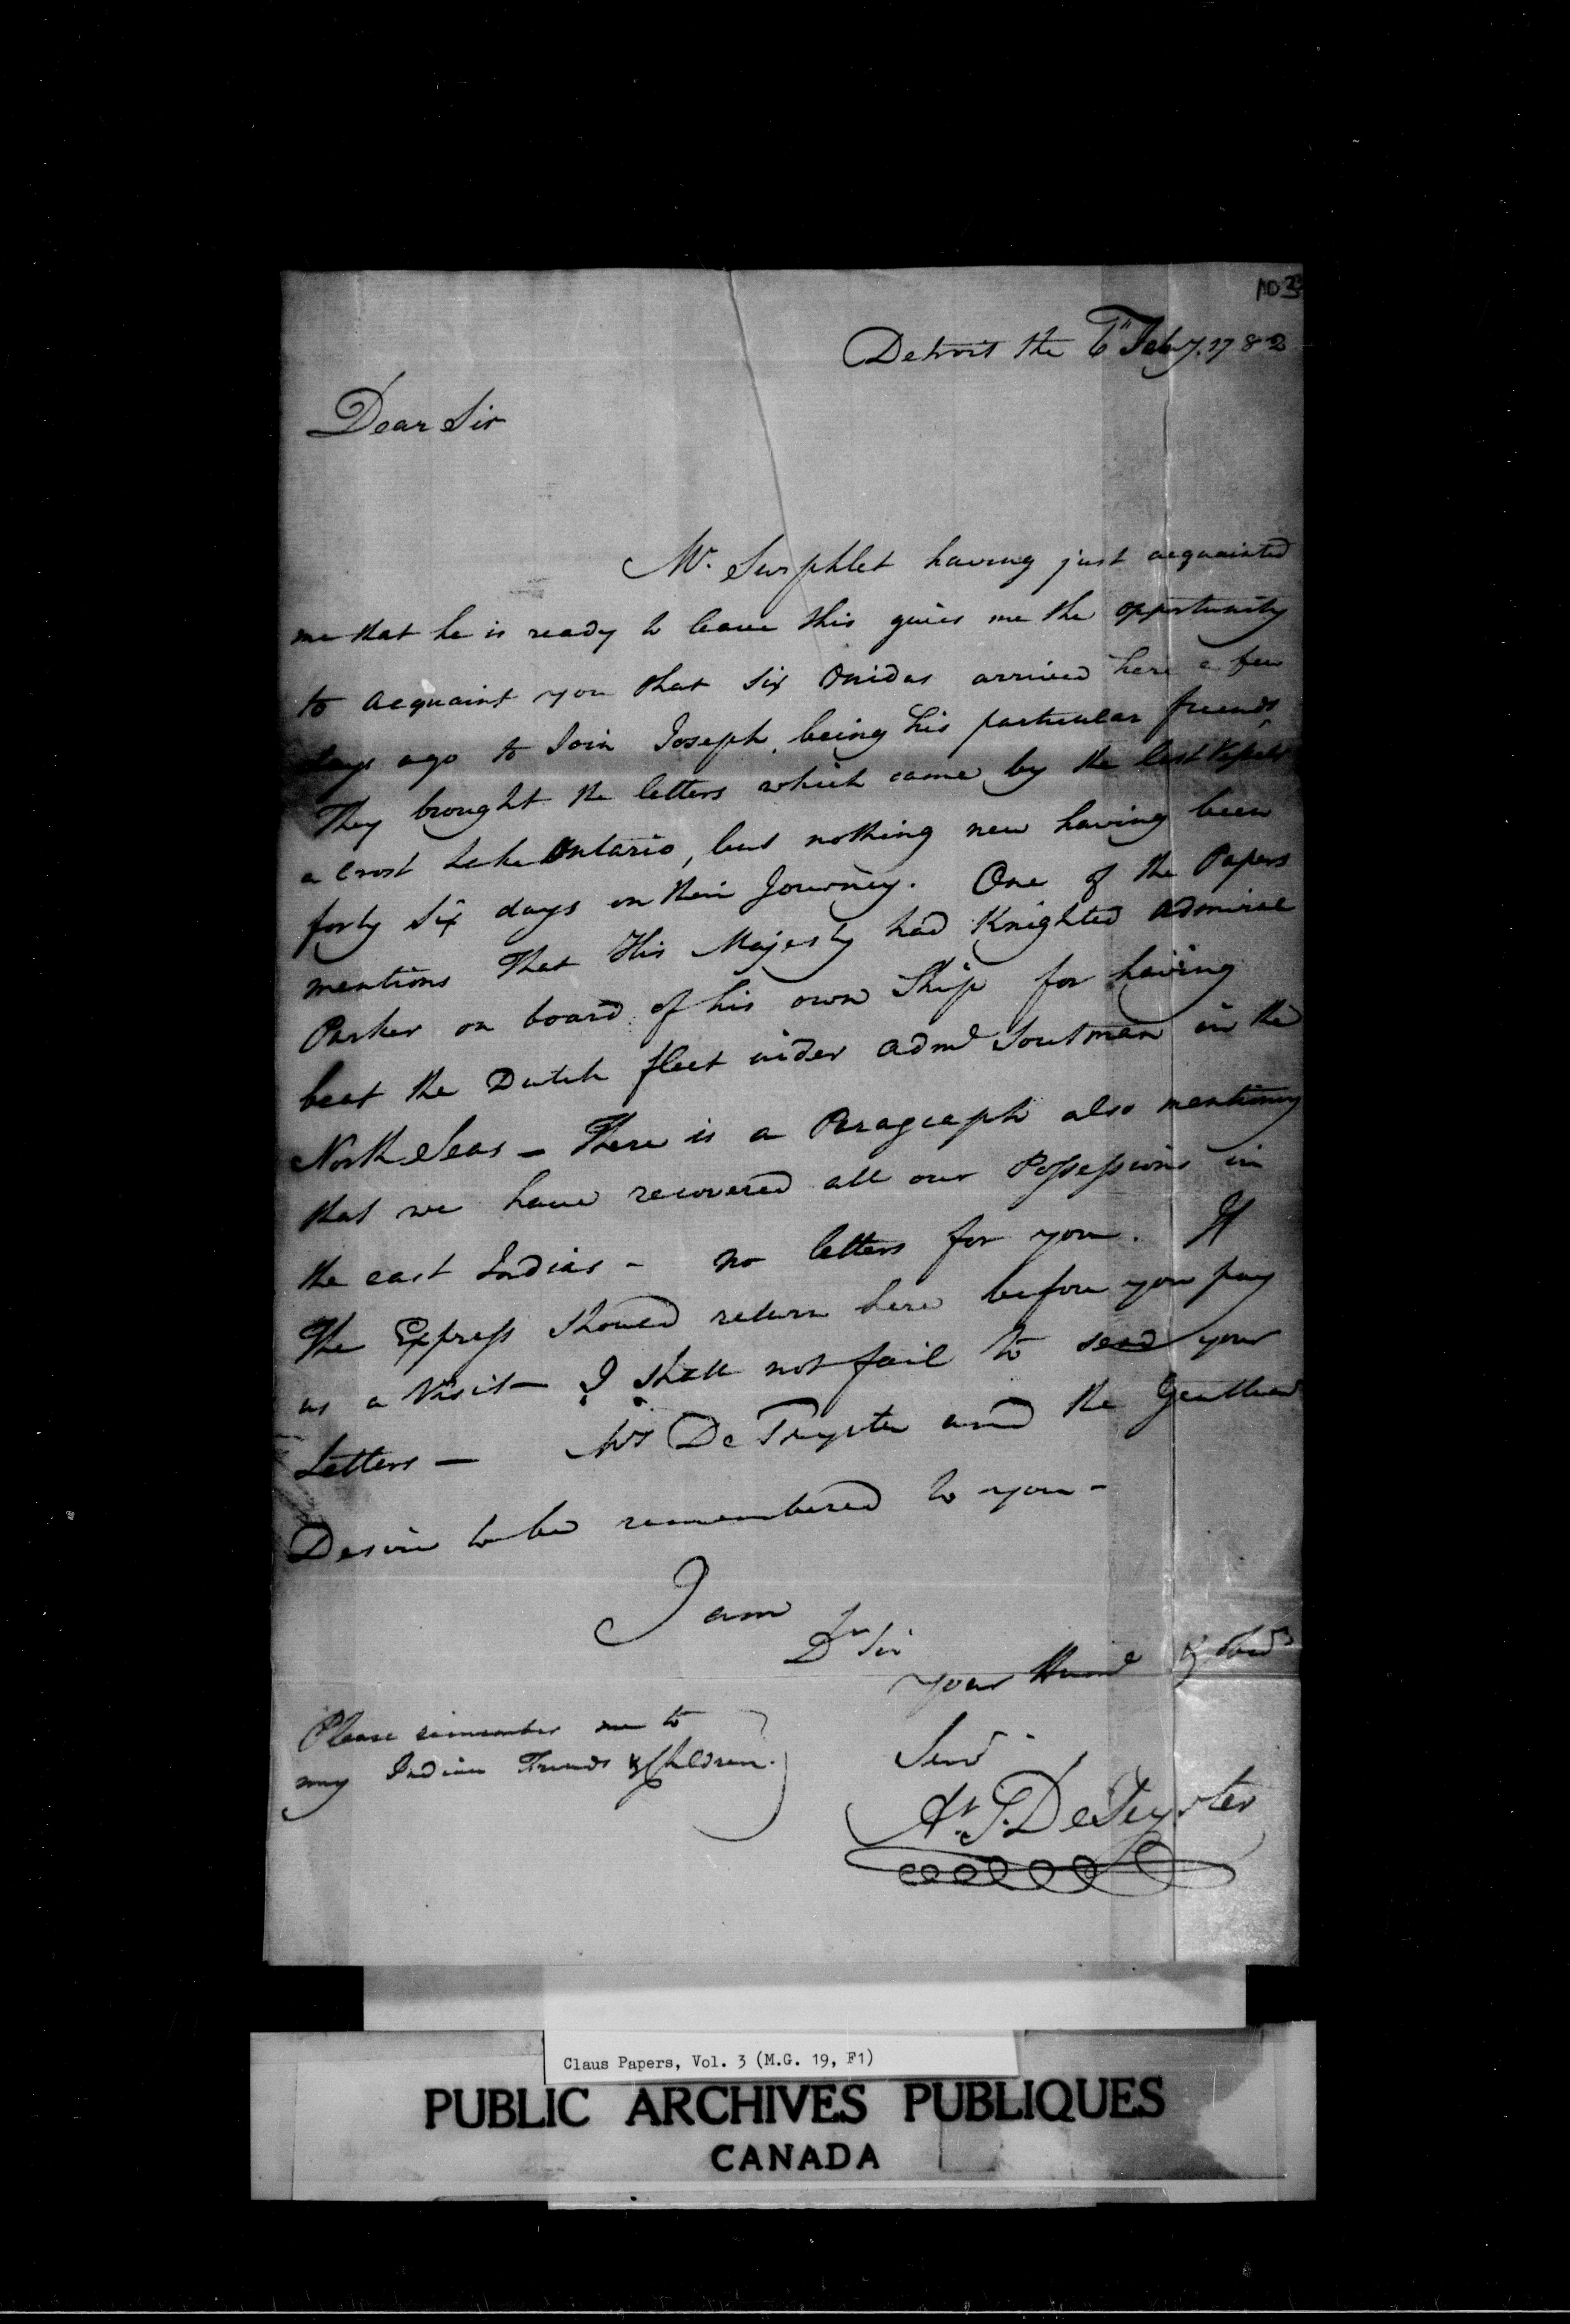 103
Detroit the 6th Feby. 1782
Dear Sir
Mr. Surphlet having just acquainted
me that he is ready to leave this gives me the opportunity
to acquaint you that six Onidas arrived here a few
days ago to Join Joseph, being his particular friends,
They brought the letters which came by the last Vessels
a Crost Lake Ontario, but nothing new having been
forty six days on their Journey. One of the Papers
mentions That His Majesty had Knighted Admiral
Parker on board of his own Ship for having
beat the Dutch fleet under Adml Soutman in the
North Seas - There is a Paragraph also mentioning
that we have recovered all our Possessions in
the east Indias - no letters for you. If
The Express should return here before you pay
us a Visit - I shall not fail to send your
Letters - Mrs DePeyster and the Gentlemen
Desire to be remembered to you -
I am
Dr Sir
your Huml & Obed
Servt
At. S. DePeyster
Please remember me to
my Indian Friends & Children.
Claus Papers, Vol. 3 (M.G. 19, F1)
PUBLIC ARCHIVES PUBLIQUES
CANADA